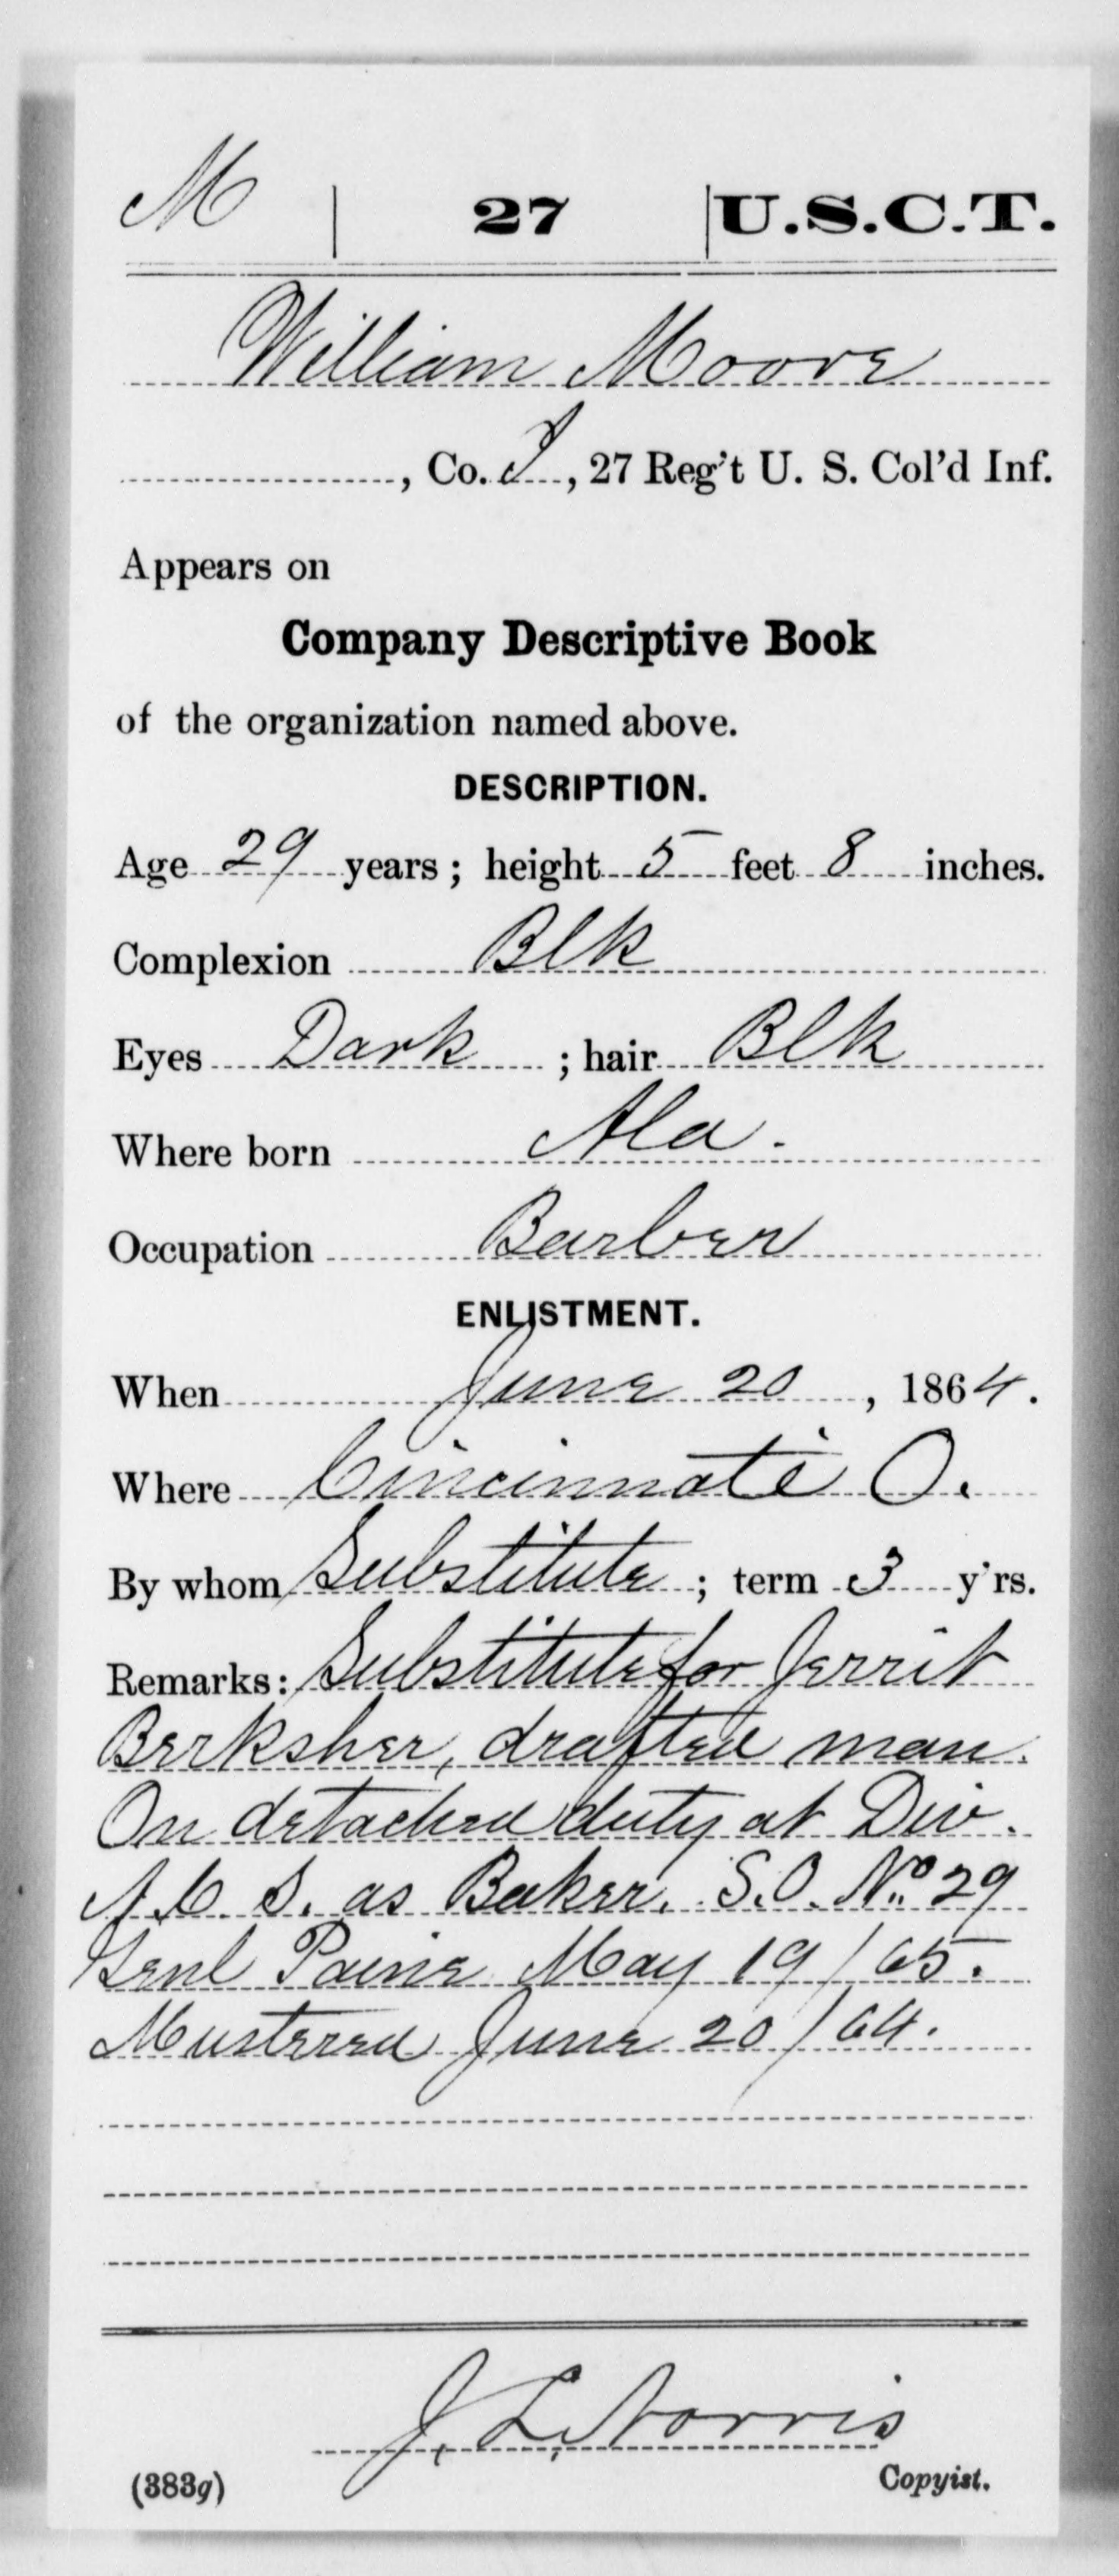 M | 27 | U.S.C.T.
William Moore
, Co. I, 27 Reg't U. S. Col'd Inf.
Appears on
Company Descriptive Book
of the organization named above.
DESCRIPTION.
Age 29 years; height 5 feet 8 inches.
Complexion Blk
Eyes Dark ; hair Blk
Where born Ala.
Occupation Barber
ENLISTMENT.
When June 20, 1864.
Where Cincinnati O.
By whom Substitute; term 3 y'rs.
Remarks: Substitute for Jerrit
Berksher, drafted man.
On detached duty at Div.
A. C. S. as Baker. S.O. No. 29
Genl Paine May 19/65.
Mustered June 20/64.
J. L. Norris
Copyist.
(383g)